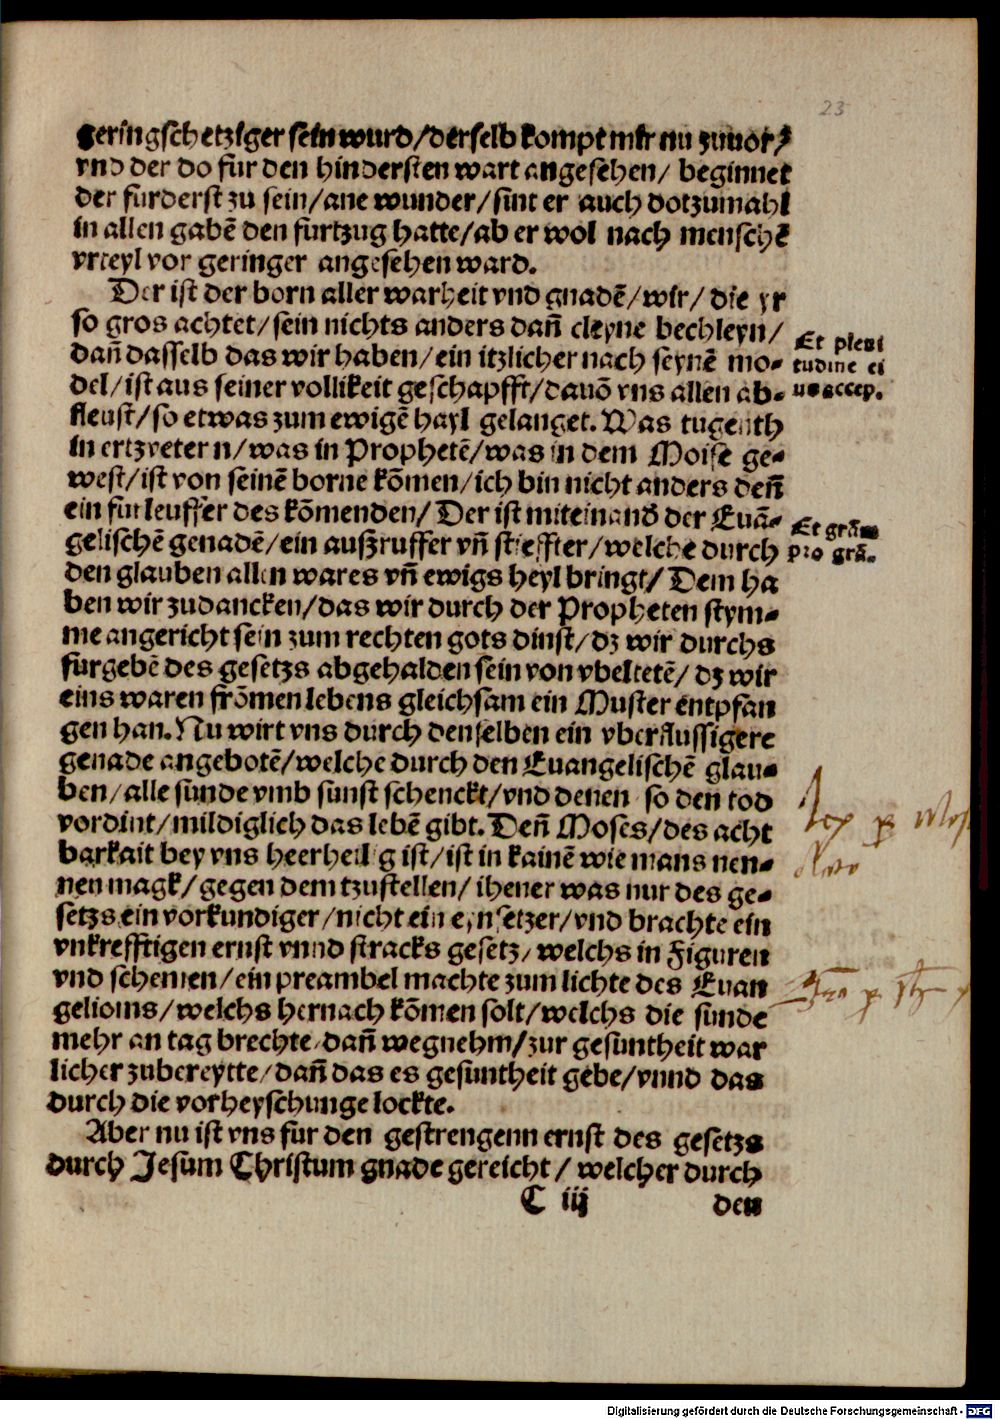 23
geringschetziger sein wurd/derselb kompt mir nu zuuor/
vnd der do fur den hindersten wart angesehen/ beginnet
der furderst zu sein/ane wunder/sint er auch dotzumahl
in allen gabē den furtzug hatte/ab er wol nach menschē
vrteyl vor geringer angesehen ward.
Der ist der born aller warheit vnd gnadē/wir/ die yr
so gros achtet/sein nichts anders dañ cleyne bechleyn/
dañ dasselb das wir haben/ein itzlicher nach seynē mo-
del/ist aus seiner vollikeit geschapfft/dauō vns allen ab-
fleust/so etwas zum ewigē hayl gelanget. Was tugenth
in ertzvetern/was in Prophetē/was in dem Moise ge-
west/ist von seinē borne kōmen/ich bin nicht anders deñ
ein furleuffer des kōmenden/Der ist miteinand der Euā-
gelischē genadē/ein außruffer vñ stieffter/welche durch
den glauben allen wares vñ ewigs heyl bringt/Dem ha
ben wir zudancken/das wir durch der Propheten stym-
me angericht sein zum rechten gots dinst/dz wir durchs
furgebē des gesetzs abgehalden sein von vbeltetē/dz wir
eins waren frōmen lebens gleichsam ein Muster entpfan
gen han. Nu wirt vns durch denselben ein vberflussigere
genade angebotē/welche durch den Euangelischē glau-
ben/alle sunde vmb sunst schenckt/vnd denen so den tod
vordint/mildiglich das lebē gibt. Deñ Moses/des acht
barkait bey vns heerheilig ist/ist in kainē wie mans nen-
nen magk/gegen dem tzustellen/ihener was nur des ge-
setzs ein vorkundiger/nicht ein eynsetzer/vnd brachte ein
vnkrefftigen ernst vnnd stracks gesetz/welchs in Figuren
vnd schemen/ein preambel machte zum lichte des Euan
gelioms/welchs hernach kōmen solt/welchs die sunde
mehr an tag brechte/dañ wegnehm/zur gesuntheit war
licher zubereytte/dañ das es gesuntheit gebe/vnnd das
durch die vorheyschunge lockte.
Aber nu ist vns fur den gestrengenn ernst des gesetzs
durch Jesum Christum gnade gereicht/ welcher durch
C iij den
Et pleni
tudine ei
us accep.
Et grām
pro grā.
Digitalisierung gefördert durch die Deutsche Forschungsgemeinschaft - DFG